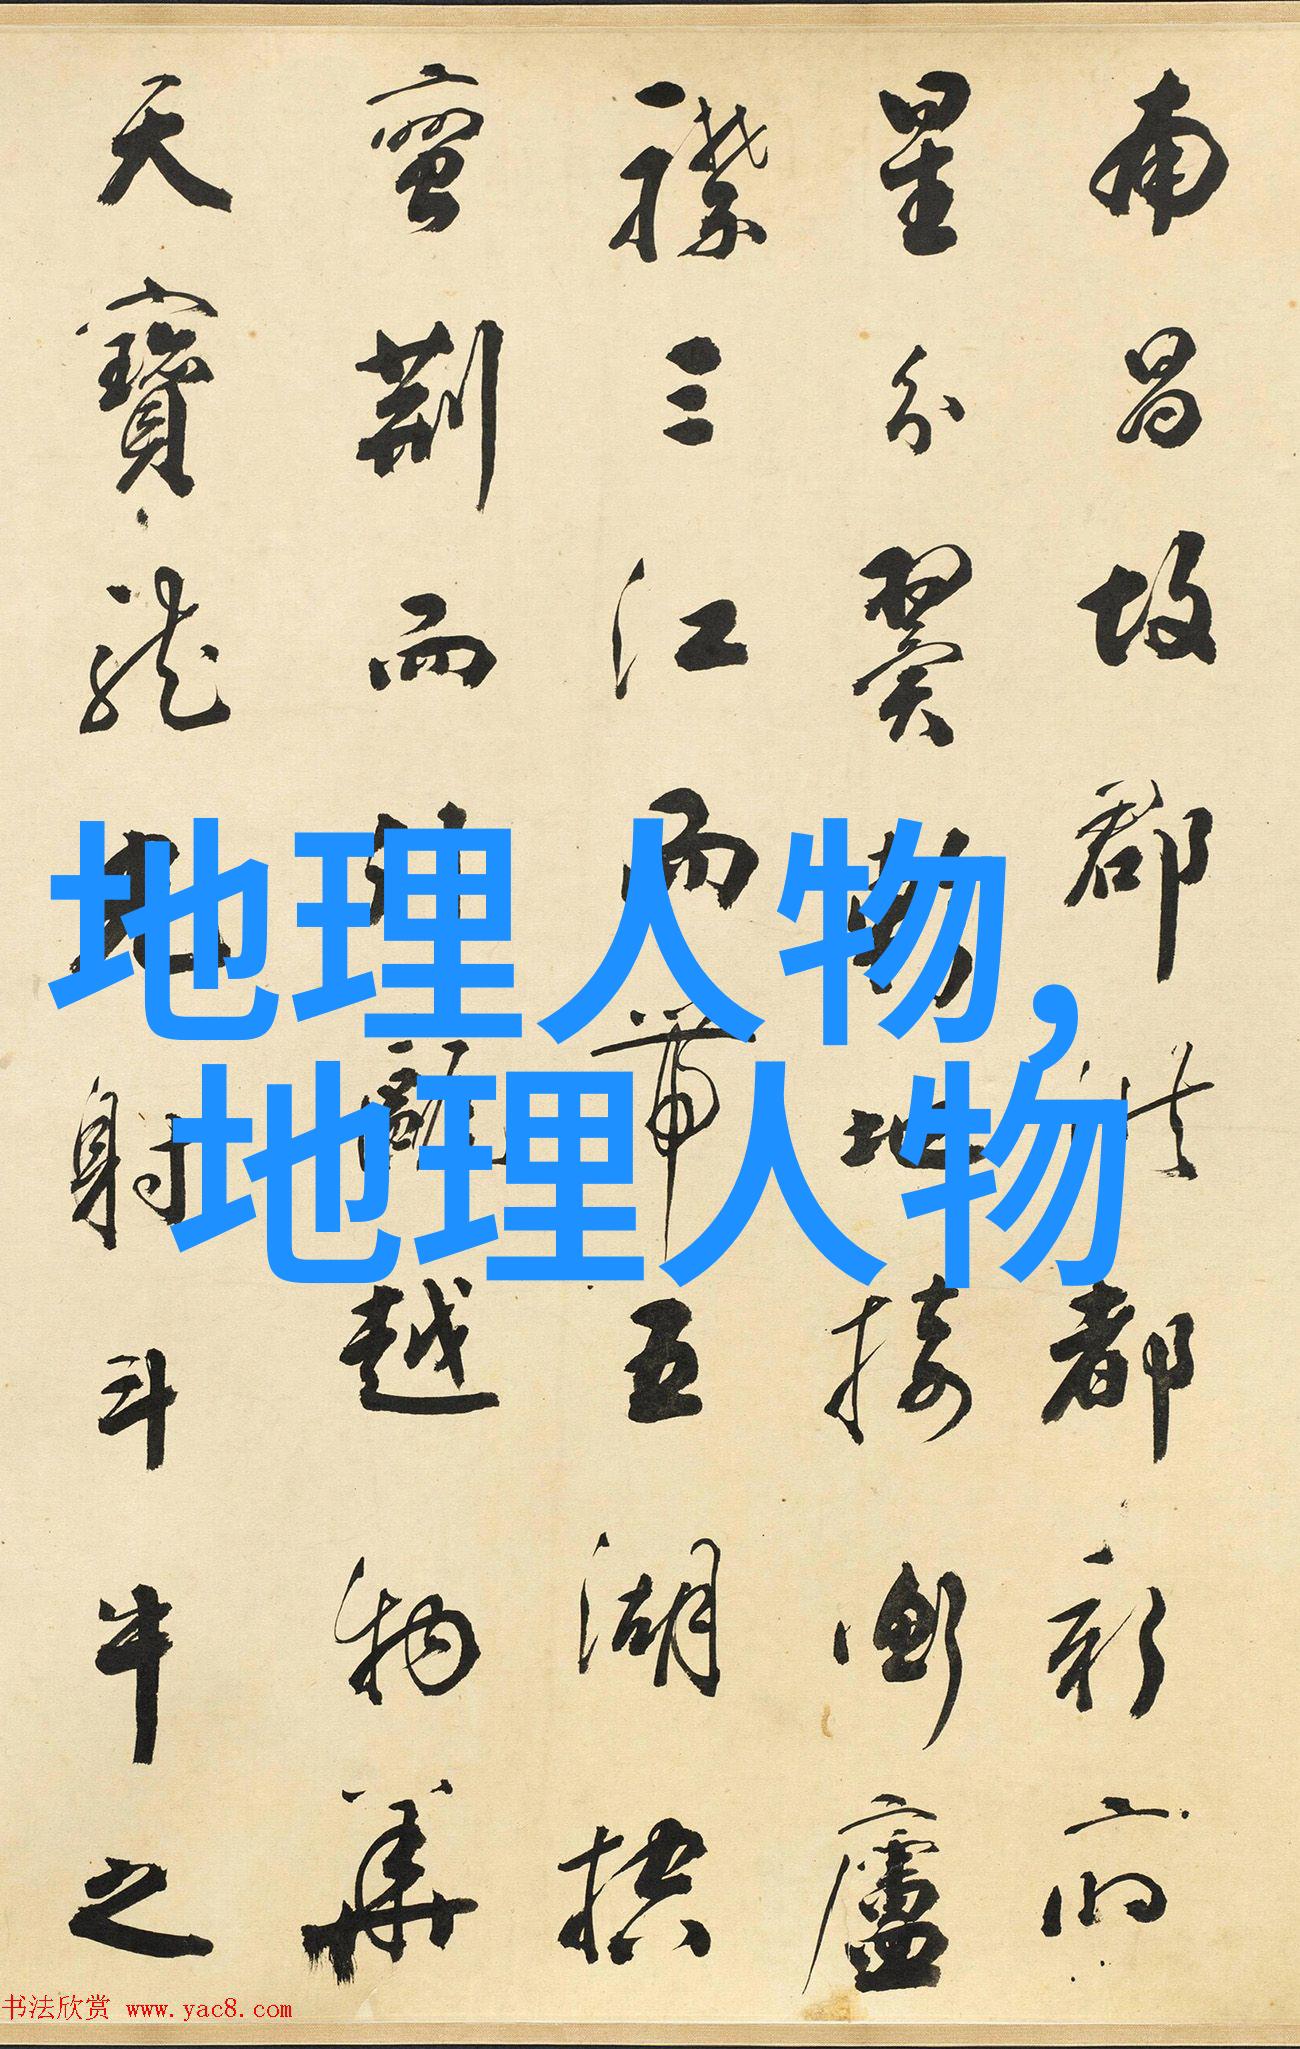 南昌故郡洪都新府
星分翼地接衡廬
襟三江而帶五湖控
蠻荊而甌越物華
天寶龍射斗牛之
地理人物,
地理人物
书法欣赏 www.yac8.com